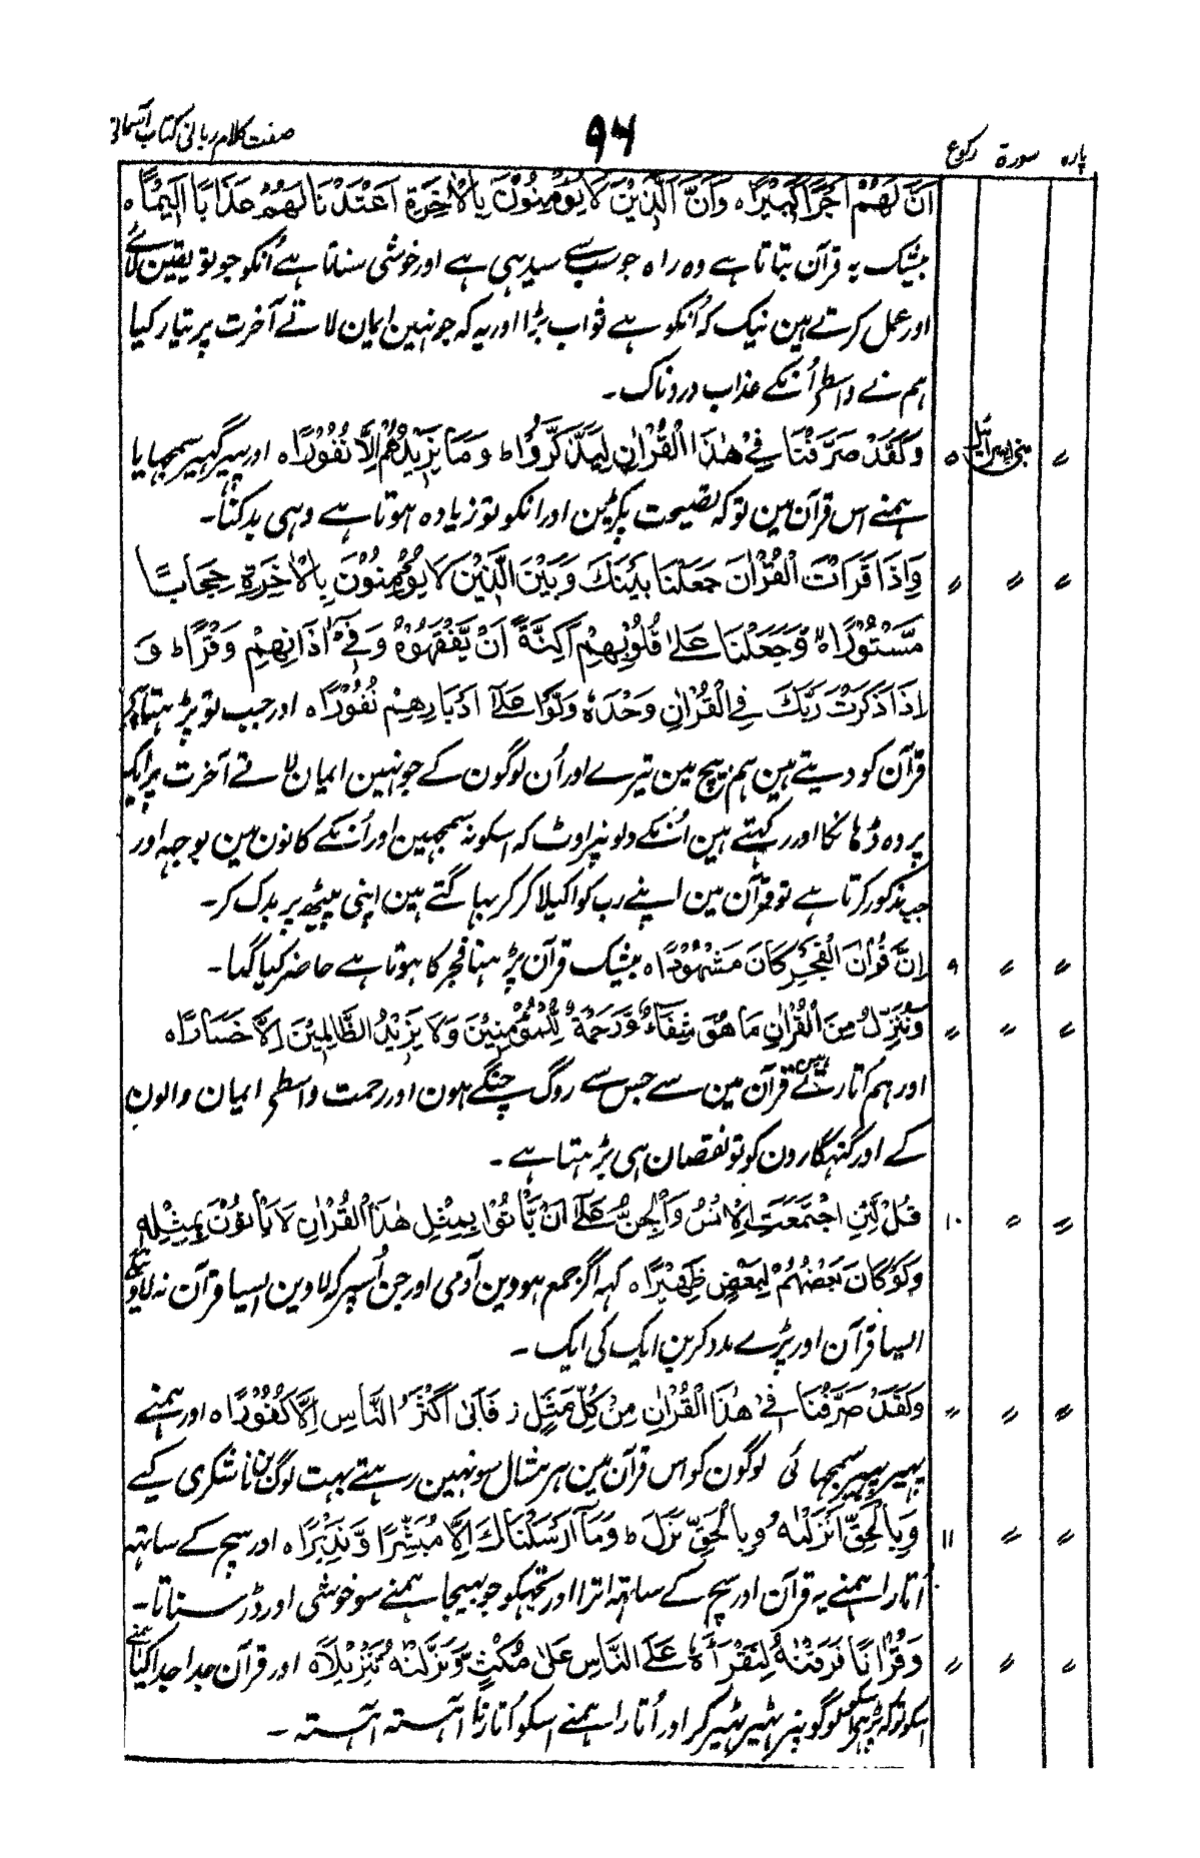 پارہ سورۃ رکوع ۹۴ صفت کلام ربانی کتاب آسمانی
اَنَّ لَهُمْ اَجْرًا كَبِيْرًا ہ وَاَنَّ الَّذِيْنَ لَا يُؤْمِنُوْنَ بِالْاٰخِرَةِ اَعْتَدْنَا لَهُمْ عَذَابًا اَلِيْمًا ہ
بیشک یہ قرآن بتاتا ہے وہ راہ جو سب سے سیدہی ہے اور خوشی سناتا ہے اُنکو جو یقین لائے
اور عمل کرتے ہین نیک کہ اُنکو ہے ثواب بڑا اور یہ کہ جو نہین ایمان لاتے آخرت پر تیار کیا
ہم نے واسطے اُنکے عذاب دردناک۔
〃 بنی اسرائیل ۵ وَلَقَدْ صَرَّفْنَا فِيْ هٰذَا الْقُرْاٰنِ لِيَذَّكَّرُوْا ط وَمَا يَزِيْدُهُمْ اِلَّا نُفُوْرًا ہ اور پہیر پہیر سمجہایا
ہمنے اس قرآن مین تو کہ نصیحت پکڑین اور انکو تو زیادہ ہوتا ہے وہی بدکنا۔
〃 〃 〃 وَاِذَا قَرَاْتَ الْقُرْاٰنَ جَعَلْنَا بَيْنَكَ وَبَيْنَ الَّذِيْنَ لَا يُؤْمِنُوْنَ بِالْاٰخِرَةِ حِجَابًا
مَّسْتُوْرًا ہ وَّجَعَلْنَا عَلٰى قُلُوْبِهِمْ اَكِنَّةً اَنْ يَّفْقَهُوْهُ وَفِيْٓ اٰذَانِهِمْ وَقْرًا ط وَ
اِذَا ذَكَرْتَ رَبَّكَ فِي الْقُرْاٰنِ وَحْدَهٗ وَلَّوْا عَلٰٓى اَدْبَارِهِمْ نُفُوْرًا ہ اور جب تو پڑہتا ہے
قرآن کو دیتے ہین ہم بیچ مین تیرے اور اُن لوگون کے جو نہین ایمان لاتے آخرت پر ایک
پردہ ڈہانکا اور رکہتے ہین اُنکے دلونپر اوٹ کہ اسکو نہ سمجہین اور اُنکے کانون مین بوجہہ اور
جب مذکور کرتا ہے تو قرآن مین اپنے رب کو اکیلا کر کر بہاگتے ہین اپنی پیٹھ پر بدک کر۔
〃 〃 ۹ اِنَّ قُرْاٰنَ الْفَجْرِ كَانَ مَشْهُوْدًا ہ بیشک قرآن پڑہنا فجر کا ہوتا ہے حاضر کیا گیا۔
〃 〃 〃 وَنُنَزِّلُ مِنَ الْقُرْاٰنِ مَا هُوَ شِفَآءٌ وَّرَحْمَةٌ لِّلْمُؤْمِنِيْنَ وَلَا يَزِيْدُ الظّٰلِمِيْنَ اِلَّا خَسَارًا ہ
اور ہم اتارتے ہین قرآن مین سے جس سے روگ چنگے ہون اور رحمت واسطے ایمان والون
کے اور گنہگارون کو تو نقصان ہی بڑہتا ہے۔
〃 〃 ۱۰ قُلْ لَّئِنِ اجْتَمَعَتِ الْاِنْسُ وَالْجِنُّ عَلٰٓى اَنْ يَّاْتُوْا بِمِثْلِ هٰذَا الْقُرْاٰنِ لَا يَاْتُوْنَ بِمِثْلِهٖ
وَلَوْ كَانَ بَعْضُهُمْ لِبَعْضٍ ظَهِيْرًا ہ کہہ اگر جمع ہووین آدمی اور جن اُسپر کہ لاوین ایسا قرآن نہ لاوینگے
ایسا قرآن اور پڑے مدد کرین ایک کی ایک۔
〃 〃 〃 وَلَقَدْ صَرَّفْنَا فِيْ هٰذَا الْقُرْاٰنِ مِنْ كُلِّ مَثَلٍ ز فَاَبٰٓى اَكْثَرُ النَّاسِ اِلَّا كُفُوْرًا ہ اور ہمنے
پہیر پہیر سمجہائی لوگون کو اس قرآن مین ہر مثال سو نہین رہتے بہت لوگ بن ناشکری کیے
〃 〃 ۱۱ وَبِالْحَقِّ اَنْزَلْنٰهُ وَبِالْحَقِّ نَزَلَ ط وَمَآ اَرْسَلْنٰكَ اِلَّا مُبَشِّرًا وَّنَذِيْرًا ہ اور سچ کے ساتہہ
اُتارا ہمنے یہ قرآن اور سچ کے ساتہہ اترا اور تجہکو جو بہیجا ہمنے سو خوشی اور ڈر سناتا۔
〃 〃 〃 وَقُرْاٰنًا فَرَقْنٰهُ لِتَقْرَاَهٗ عَلَى النَّاسِ عَلٰى مُكْثٍ وَّنَزَّلْنٰهُ تَنْزِيْلًا ہ اور قرآن جدا جدا کیا ہمنے
اسکو تو کہ پڑہے اسکو لوگونپر ٹہیر ٹہیر کر اور اُتارا ہمنے اسکو اُتارنا آہستہ آہستہ۔